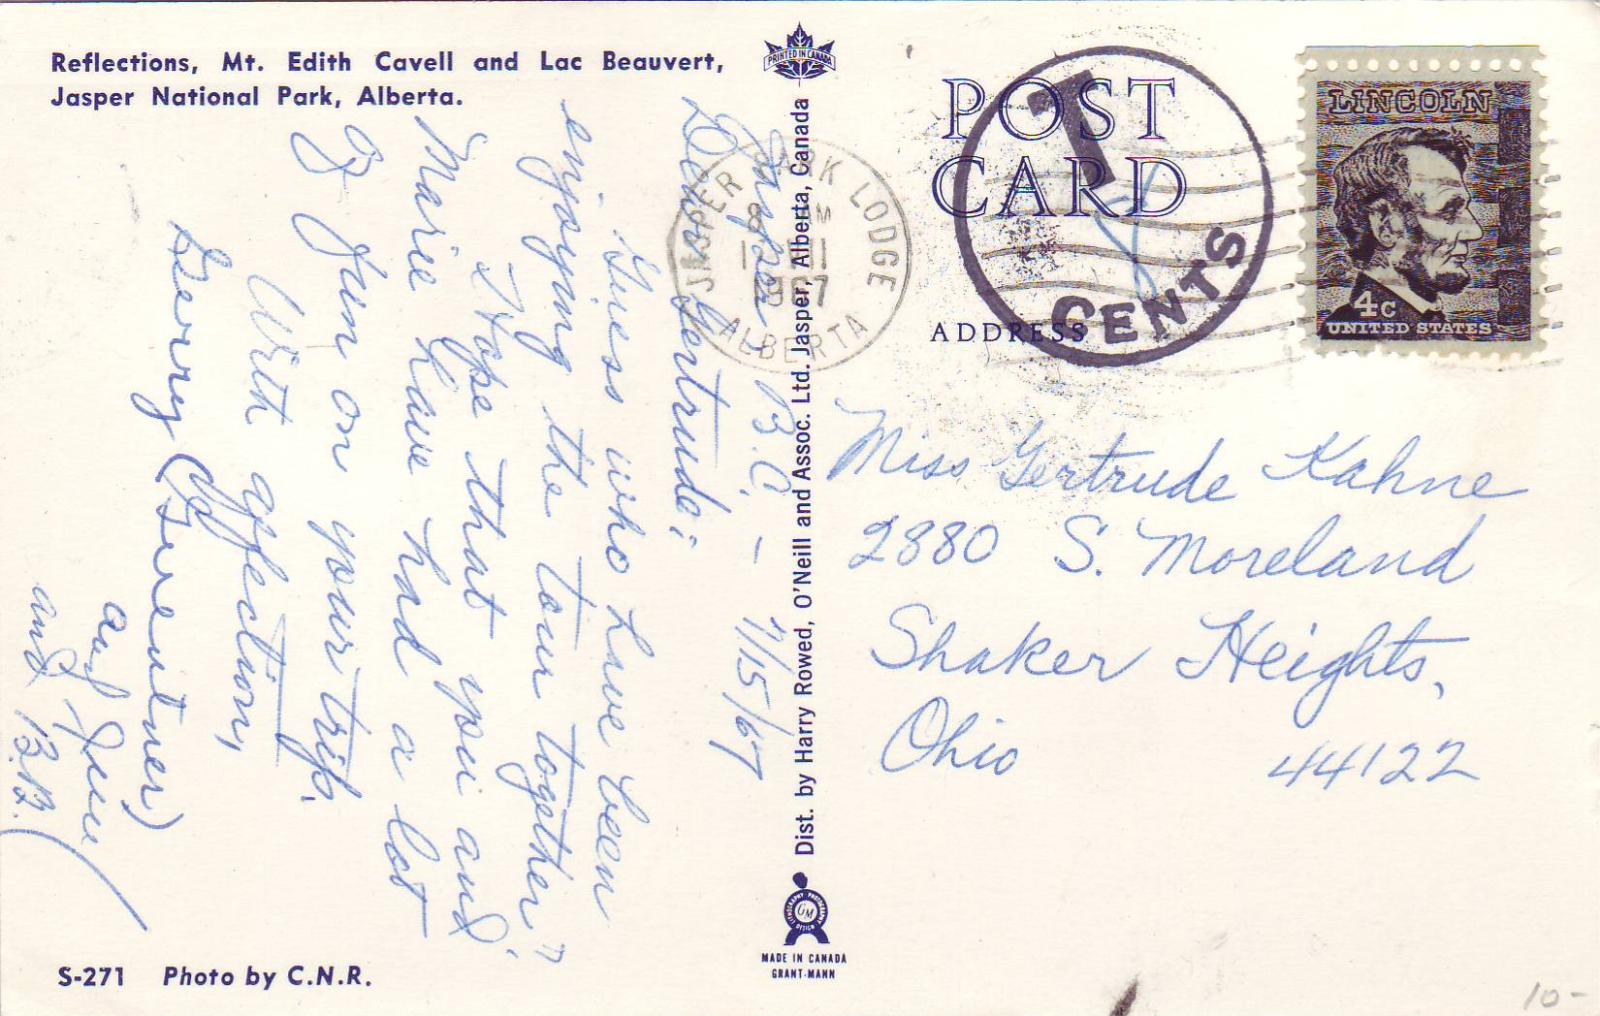 Reflections, Mt. Edith Cavell and Lac Beauvert,
Jasper National Park, Alberta.
Jasper, B.C. - 7/15/67
Dear Gertrude:
Guess who have been
enjoying the tour together"
I hope that you and
Marie have had a lot
of fun on your trip.
With affection,
Gerry
and June
and B.B.
S-271 Photo by C.N.R.
PRINTED IN CANADA
Dist. by Harry Rowed, O'Neill and Assoc. Ltd. Jasper, Alberta, Canada
LITHOGRAPHY PHOTOGRAPHY
GM
DESIGN
MADE IN CANADA
GRANT-MANN
POST
CARD
ADDRESS
JASPER PARK LODGE
1967
ALBERTA
T
CENTS
LINCOLN
4c
UNITED STATES
Miss Gertrude Kahne
2880 S. Moreland
Shaker Heights,
Ohio 44122
10-